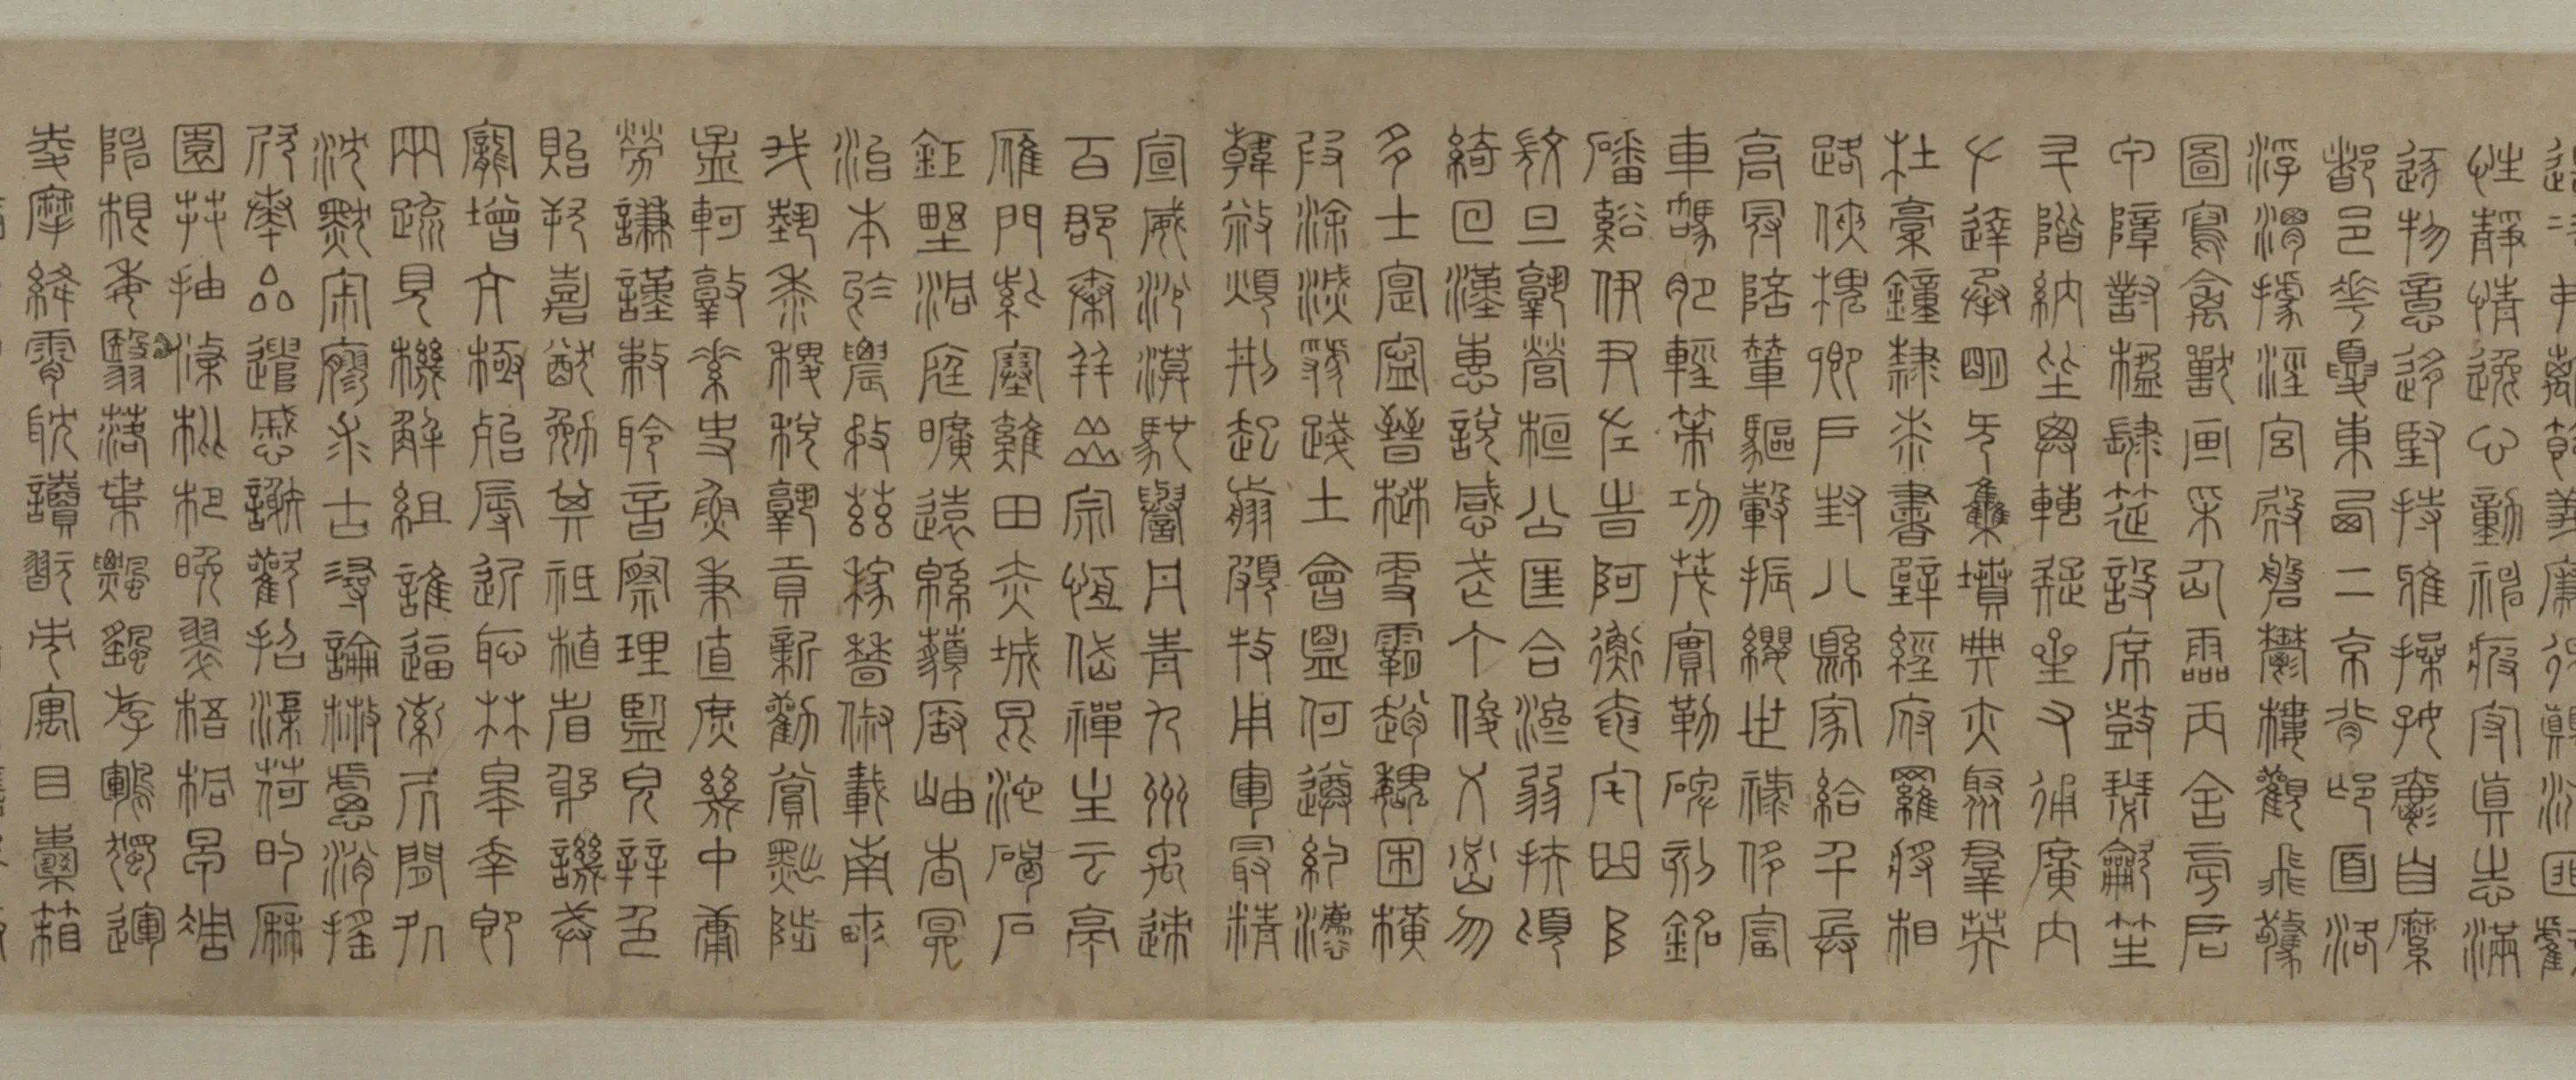 造次弗離節義廉退顛沛匪虧
性靜情逸心動神疲守真志滿
逐物意移堅持雅操好爵自縻
都邑華夏東西二京背邙面洛
浮渭據涇宮殿盤鬱樓觀飛驚
圖寫禽獸畫采仙靈丙舍旁启
甲障對楹肆筵設席鼓瑟龡笙
升階納陛弁轉疑星右通廣內
左達承明既集墳典亦聚群英
杜稾鍾隸漆書壁經府羅將相
路俠槐卿戶封八縣家給千兵
高冠陪輦驅轂振纓世祿侈富
車駕肥輕策功茂實勒碑刻銘
磻谿伊尹佐時阿衡奄宅曲阜
微旦孰營桓公匡合濟弱扶傾
綺回漢惠說感武丁俊乂密勿
多士寔寧晉楚更霸趙魏困橫
假途滅虢踐土會盟何遵約法
韓弊煩刑起翦頗牧用軍最精
宣威沙漠馳譽丹青九州禹跡
百郡秦并嶽宗恒岱禪主云亭
雁門紫塞雞田赤城昆池碣石
鉅野洞庭曠遠綿邈巖岫杳冥
治本於農務茲稼穡俶載南畝
我藝黍稷稅孰貢新勸賞黜陟
孟軻敦素史魚秉直庶幾中庸
勞謙謹敕聆音察理監皃辨色
貽厥嘉猷勉其祗植省躬譏誡
寵增亢極殆辱近恥林皋幸即
兩疏見機解組誰逼索居閒處
沈默寂寥求古尋論散慮消搖
欣奏累遣慼謝歡招渠荷的歷
園莽抽條枇杷晚翠梧桐早凋
陳根委翳落葉飄颻游鵾獨運
凌摩絳霄耽讀翫市寓目囊箱